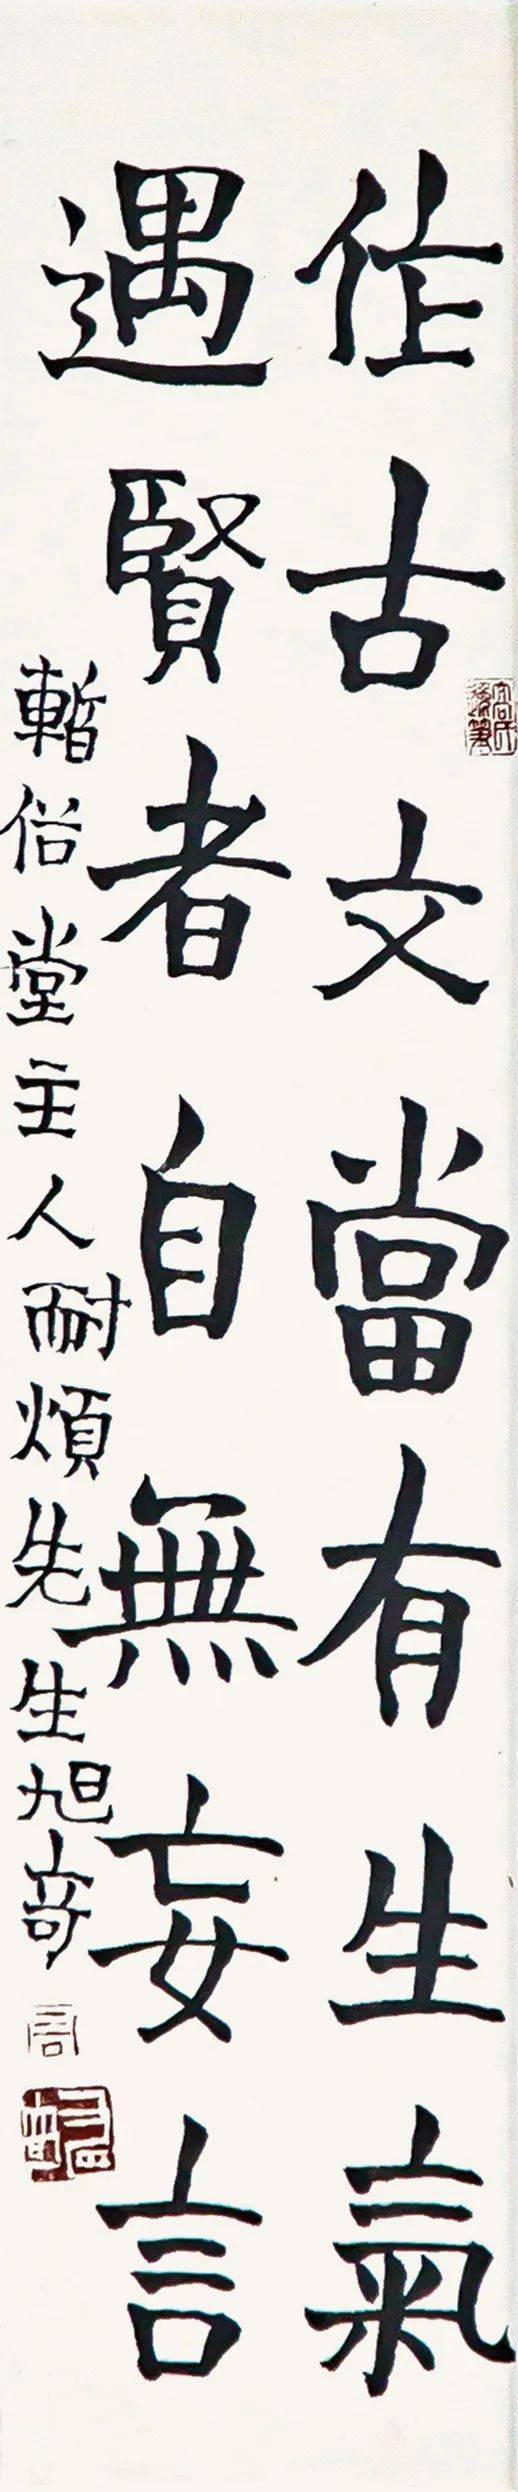 作古文當有生氣
遇賢者自無妄言
暫俗堂主人耐煩先生旭竒